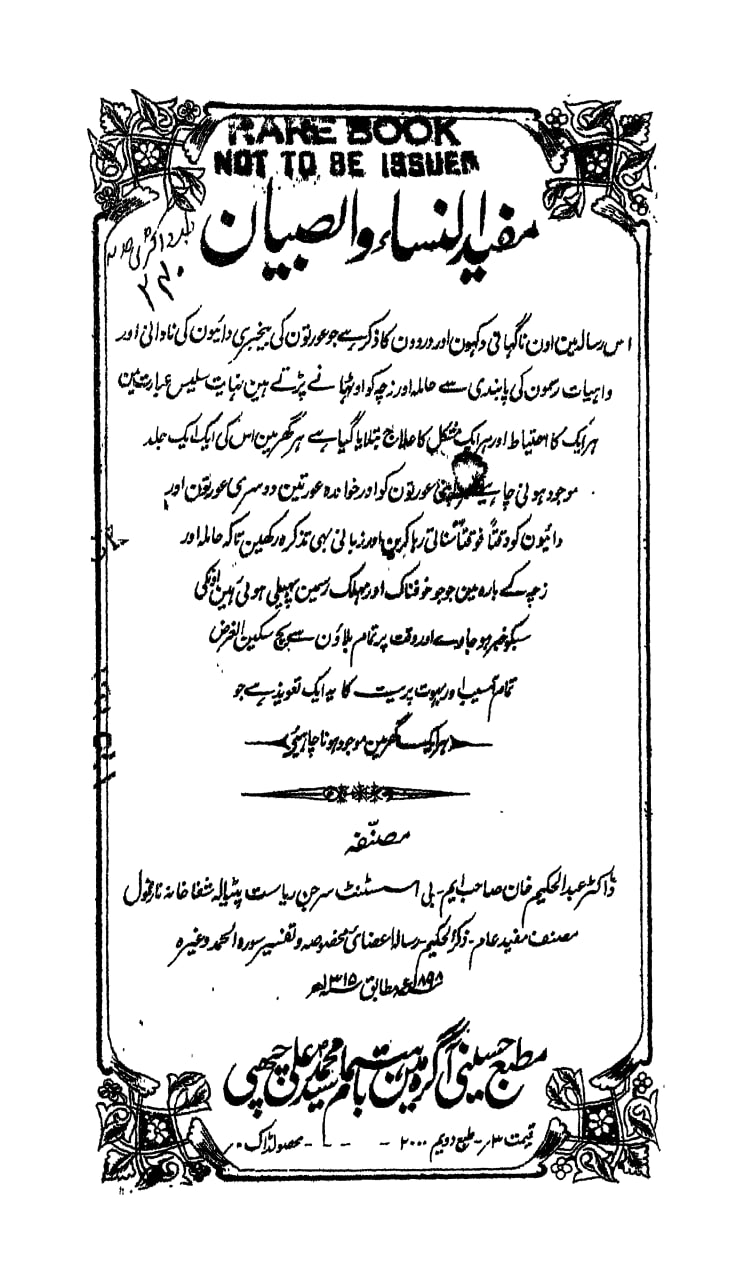 RARE BOOK
NOT TO BE ISSUED
مفید النساء والصبیان
۲۴۰
اس رسالہ مین اون ناگہانی دکہون اور دردون کا ذکر ہے جو عورتون کی بیخبری دائیون کی نادانی اور
واہیات رسمون کی پابندی سے حاملہ اور زچہ کو اوٹہانے پڑتے ہین نہایت سلیس عبارت مین
ہر ایک کا احتیاط اور ہر ایک مشکل کا علاج بتلایا گیا ہے ہر گھر مین اس کی ایک ایک جلد
موجود ہونی چاہیے عورتون کو اور خواندہ عورتین دوسری عورتون اور
دائیون کو وقتاً فوقتاً سناتی رہا کرین اور زبانی بہی تذکرہ رکھین تاکہ حاملہ اور
زچہ کے بارہ مین جو جو خوفناک اور مہلک رسمین پہیلی ہوئی ہین اونکی
سبکو خبر ہو جاوے اور وقت پر تمام بلاؤن سے بچ سکین الغرض
تمام آسیب اور بہوت پریت کا یہ ایک تعویذ ہے جو
ہر ایک گھر مین موجود ہونا چاہیئے
مصنّفہ
ڈاکٹر عبدالحکیم خان صاحب ایم- بی اسسٹنٹ سرجن ریاست پٹیالہ شفاخانہ نارنول
مصنف مفید عام- ذکر الحکیم- رسالہ اعضائ مخصوصہ و تفسیر سورہ الحمد وغیرہ
۱۸۹۸ء مطابق ۱۳۱۵ھ
مطبع حسینی آگرہ مین باہتمام سید محمد علی چھپی
قیمت ۳ر- طبع دویم ۲۰۰۰ - - - - محصولڈاک